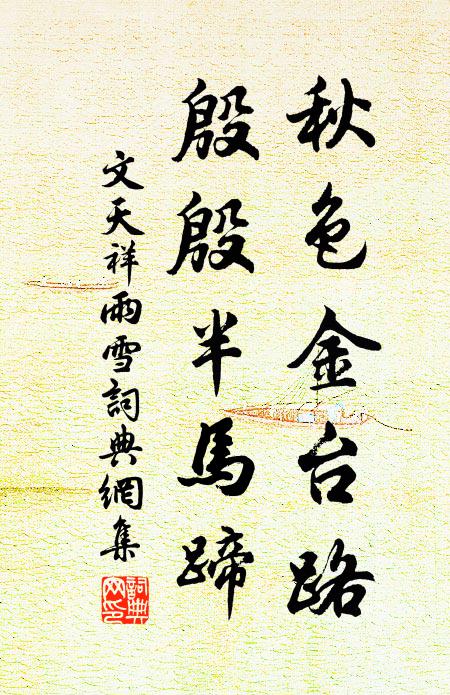 秋色金台路
殷殷半馬蹄
文天祥雨雪詞典網集
詞典
网印